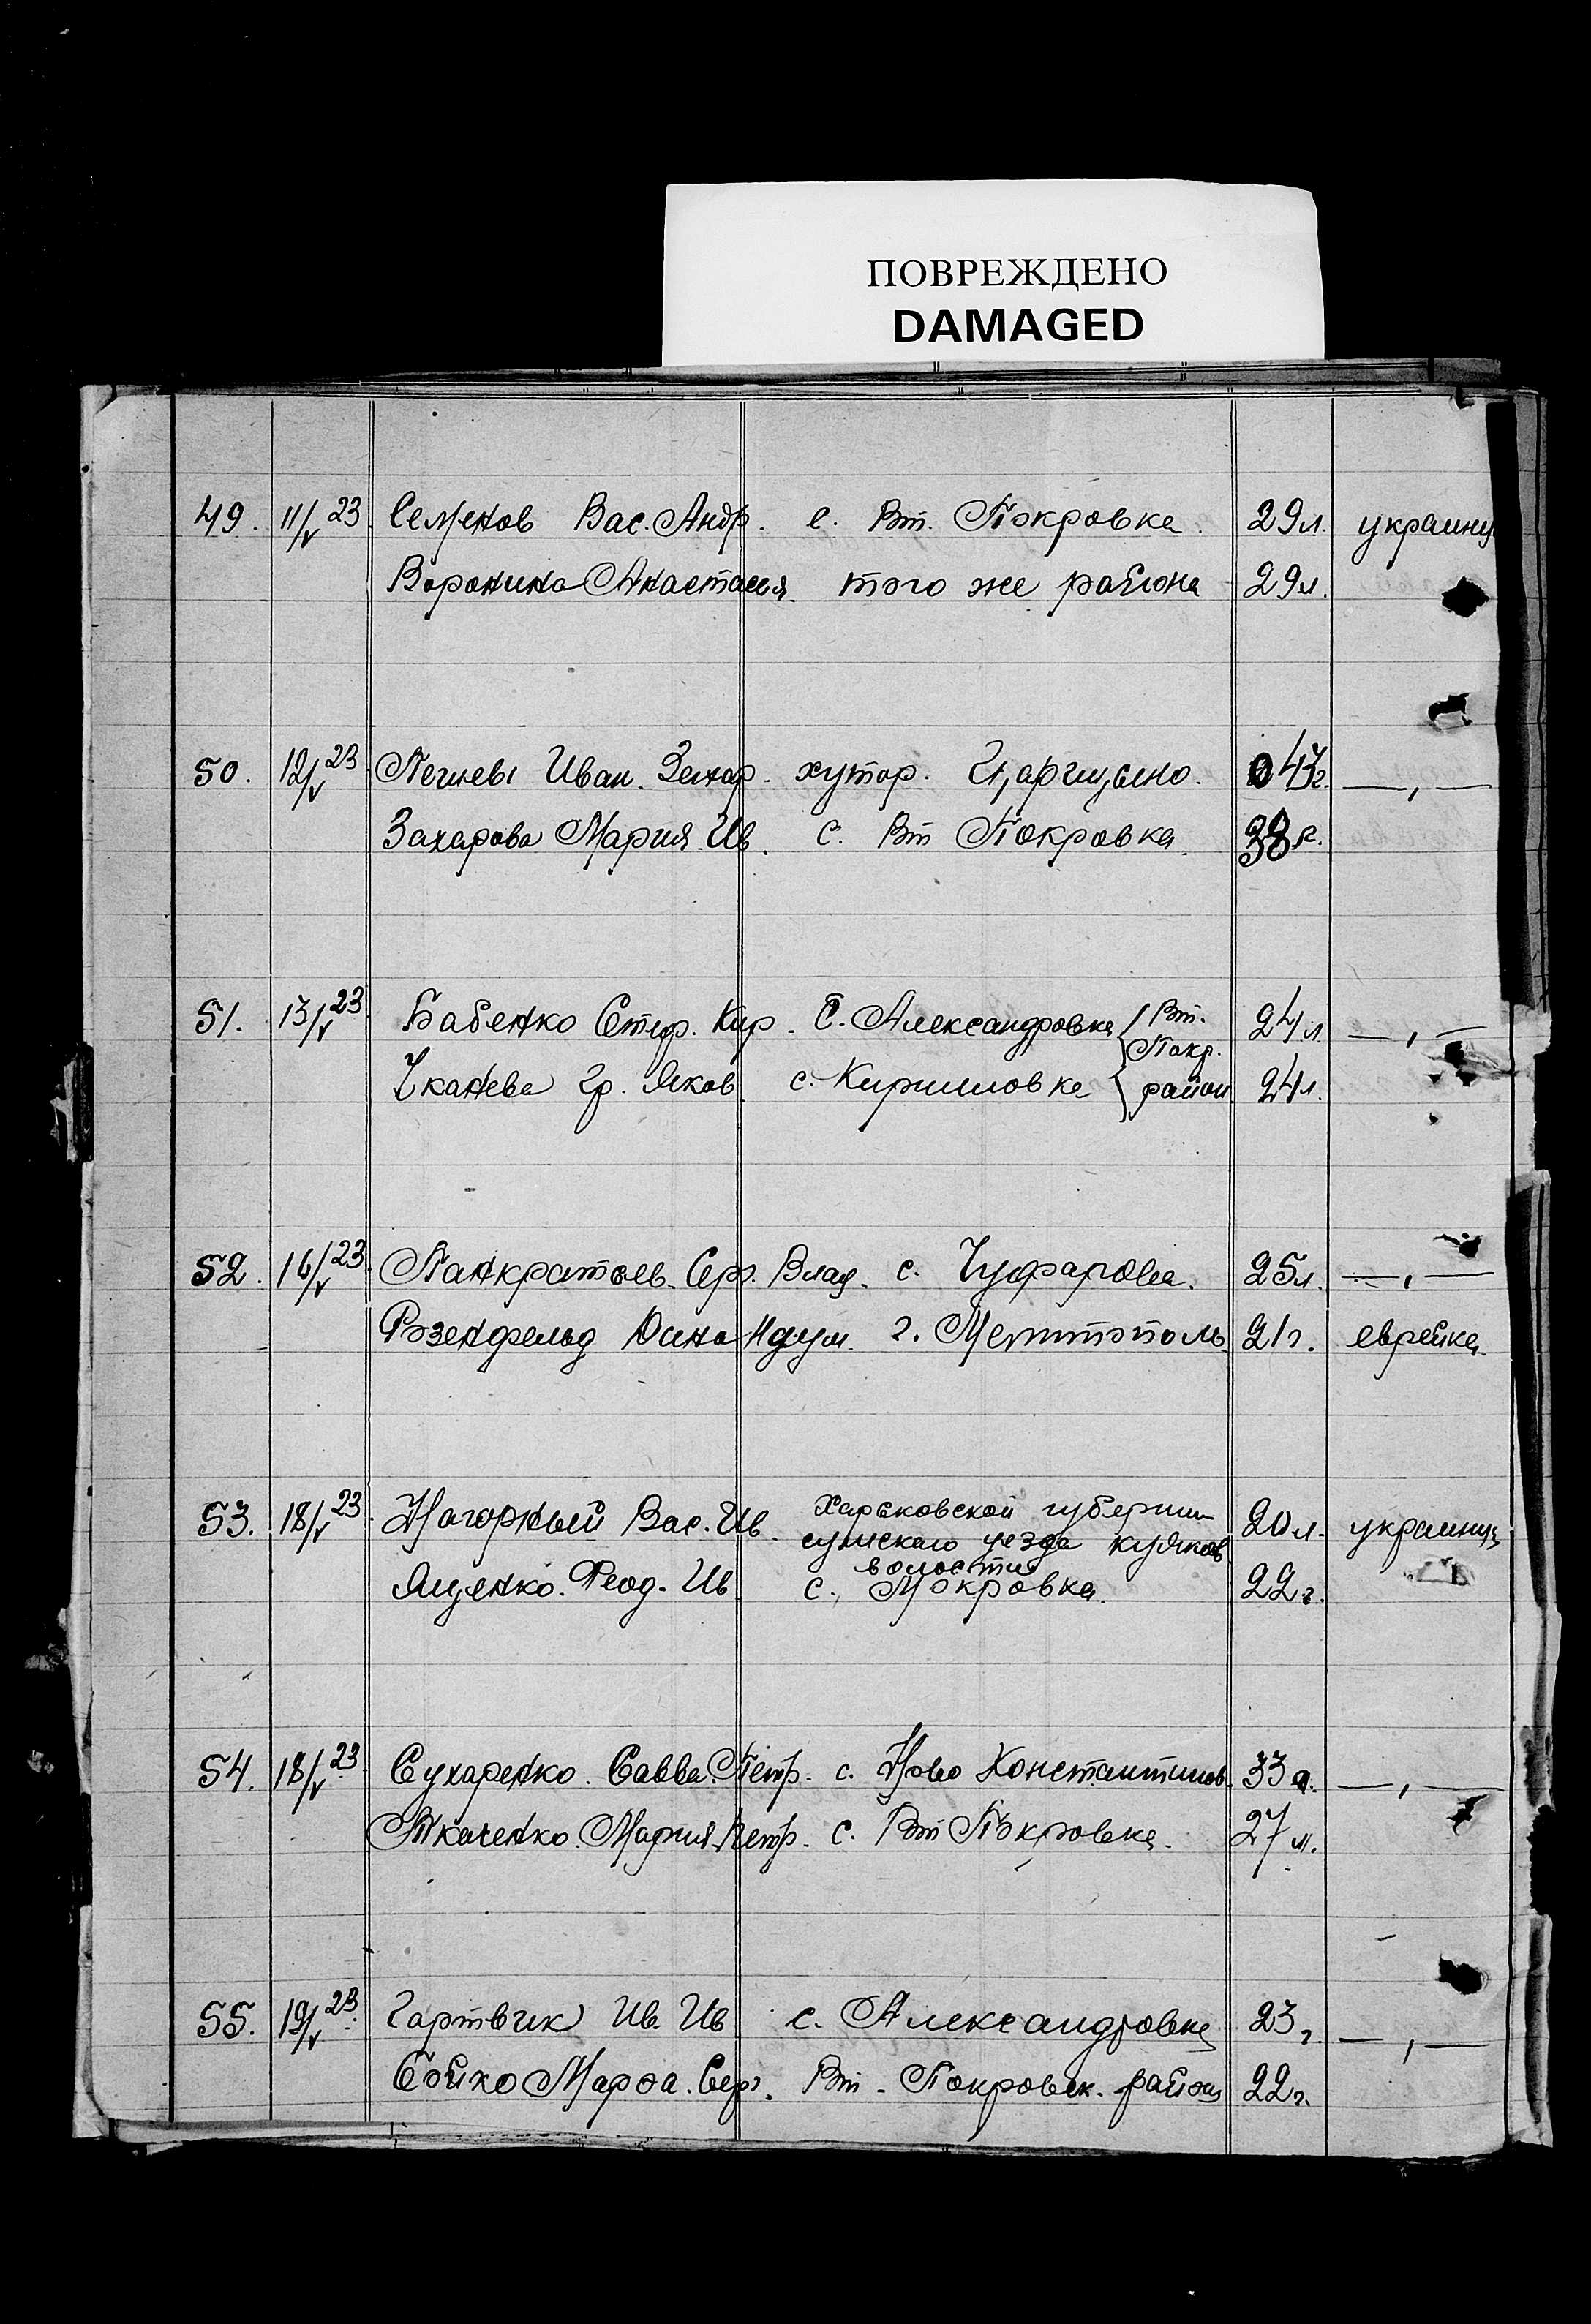 ПОВРЕЖДЕНО
DAMAGED
49. 11/V 23. Семенов Вас. Андр. с. Вт. Покровка. 29л. украинц
Воронина Анастасия. того же района 29л.
50. 12/V 23 Иван. Захар. хутор. 47г. —„—
Захарова Мария Ив. с. Вт Покровка. 38л.
51. 13/V 23. Бабенко Стеф. Кир. С. Александровка Вт. 24л. —„—
Покр.
Чканева Яков с. Кирилловка район 24л.
52. 16/V 23. Панкратьев. Серг. Влад. с. Чуфарова. 25л. —„—
Розенфельд г. Мелитополь 21г. еврейка.
53. 18/V 23. Нагорный Вас. Ив. Харьковской губернии 20л. украинц
сумскаго уезда
волости
Ященко. Феод. Ив с. Покровка. 22г.
54. 18/V 23. Сухаренко. Савва. Петр. с. Ново Константинов. 33 —„—
Ткаченко. Мария Петр. с. Вт Покровка. 27л.
55. 19/V 23. Ив. Ив с. Александровка 23г —„—
Бойко Марфа. Серг. Вт. Покровск. район 22г.